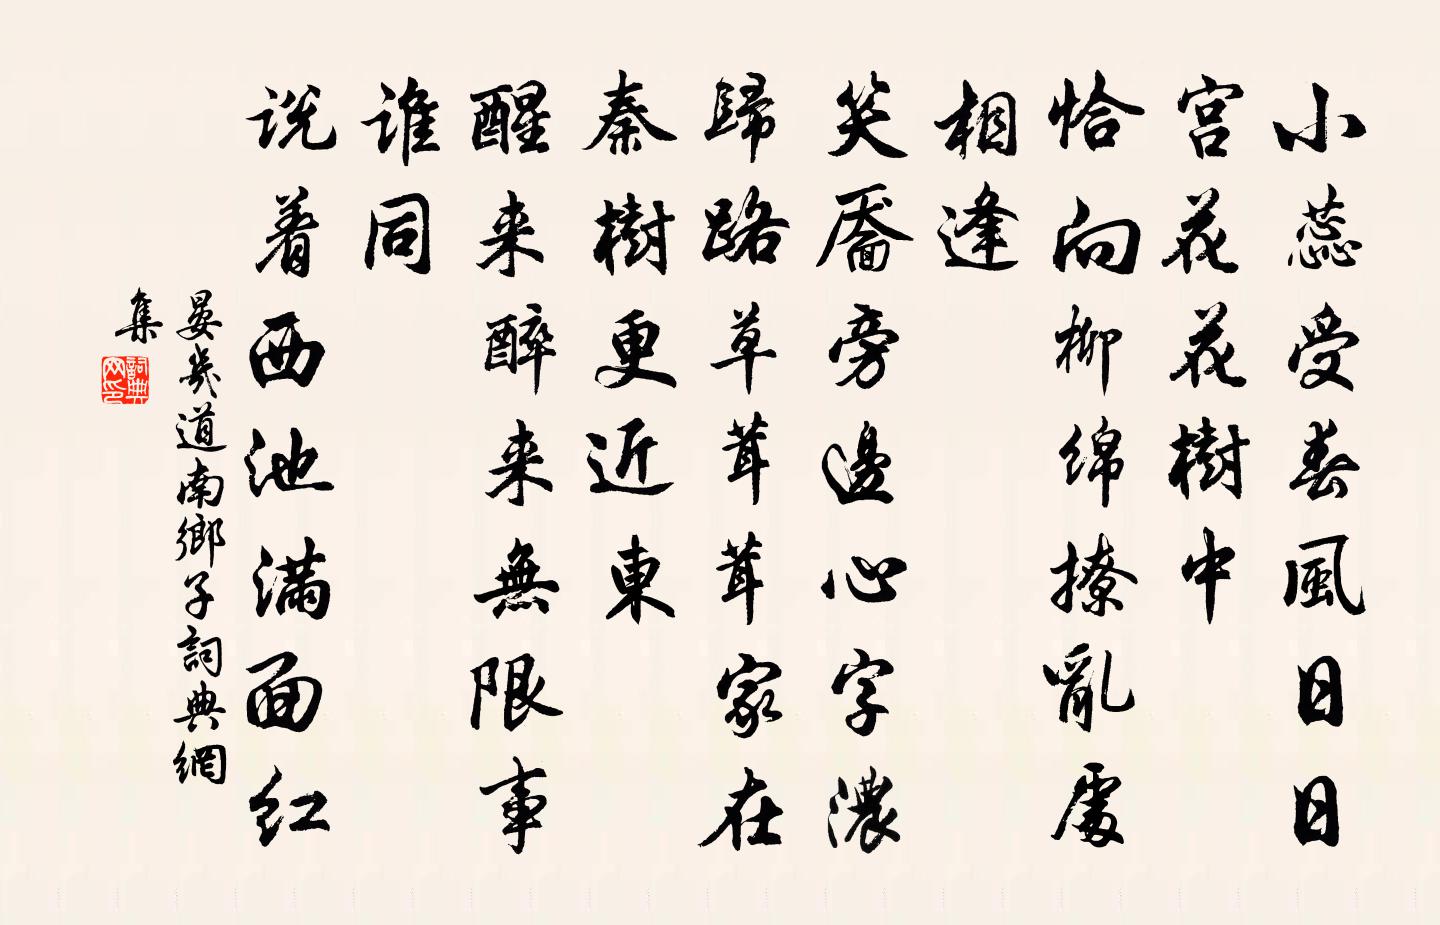 小蕊受春風日日
宫花花樹中
恰向柳绵撩亂處
相逢
笑靥旁邊心字濃
歸路草茸茸家在
秦樹更近東
醒来醉来無限事
谁同
说着西池满面红
晏幾道南鄉子詞典網
集
詞典
网印